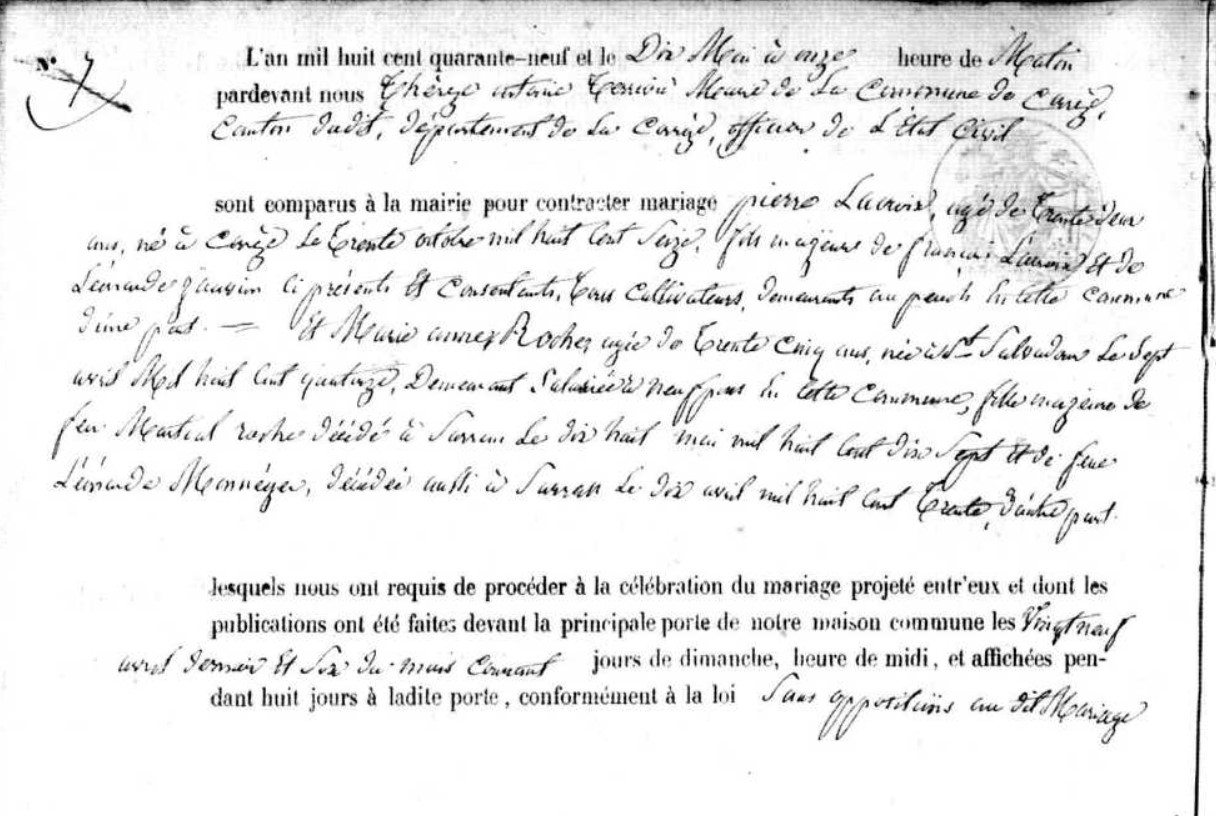 N° 7
L'an mil huit cent quarante-neuf et le Dix Mai à onze heure de Matin
pardevant nous Thérèze antoine Maire de La Commune de Corrèze,
Canton dudit, département de La Corrèze, officier de L'Etat Civil
sont comparus à la mairie pour contracter mariage pierre Lacroix, agé de Trente deux
ans, né à Corrèze Le Trente octobre mil huit Cent Seize, fils majeur de françois Lacroix Et de
Léonarde ci présents Et Consentants, Tous Cultivateurs, demeurants au peuch En Cette Commune
d'une part. — Et Marie anne Roche agée de Trente Cinq ans, née à St Salvadour Le Sept
avril Mil huit Cent quatorze, Demeurant En Cette Commune, fille majeure de
feu Martial roche décédé à Sarran Le dix huit mai mil huit Cent dix Sept Et de feue
Léonarde décédée aussi à Sarran Le dix avril mil huit Cent Trente, d'autre part.
lesquels nous ont requis de procéder à la célébration du mariage projeté entr'eux et dont les
publications ont été faites devant la principale porte de notre maison commune les Vingt neuf
avril dernier Et Six du mois Courant jours de dimanche, heure de midi, et affichées pen-
dant huit jours à ladite porte, conformément à la loi Sans oppositions au dit Mariage